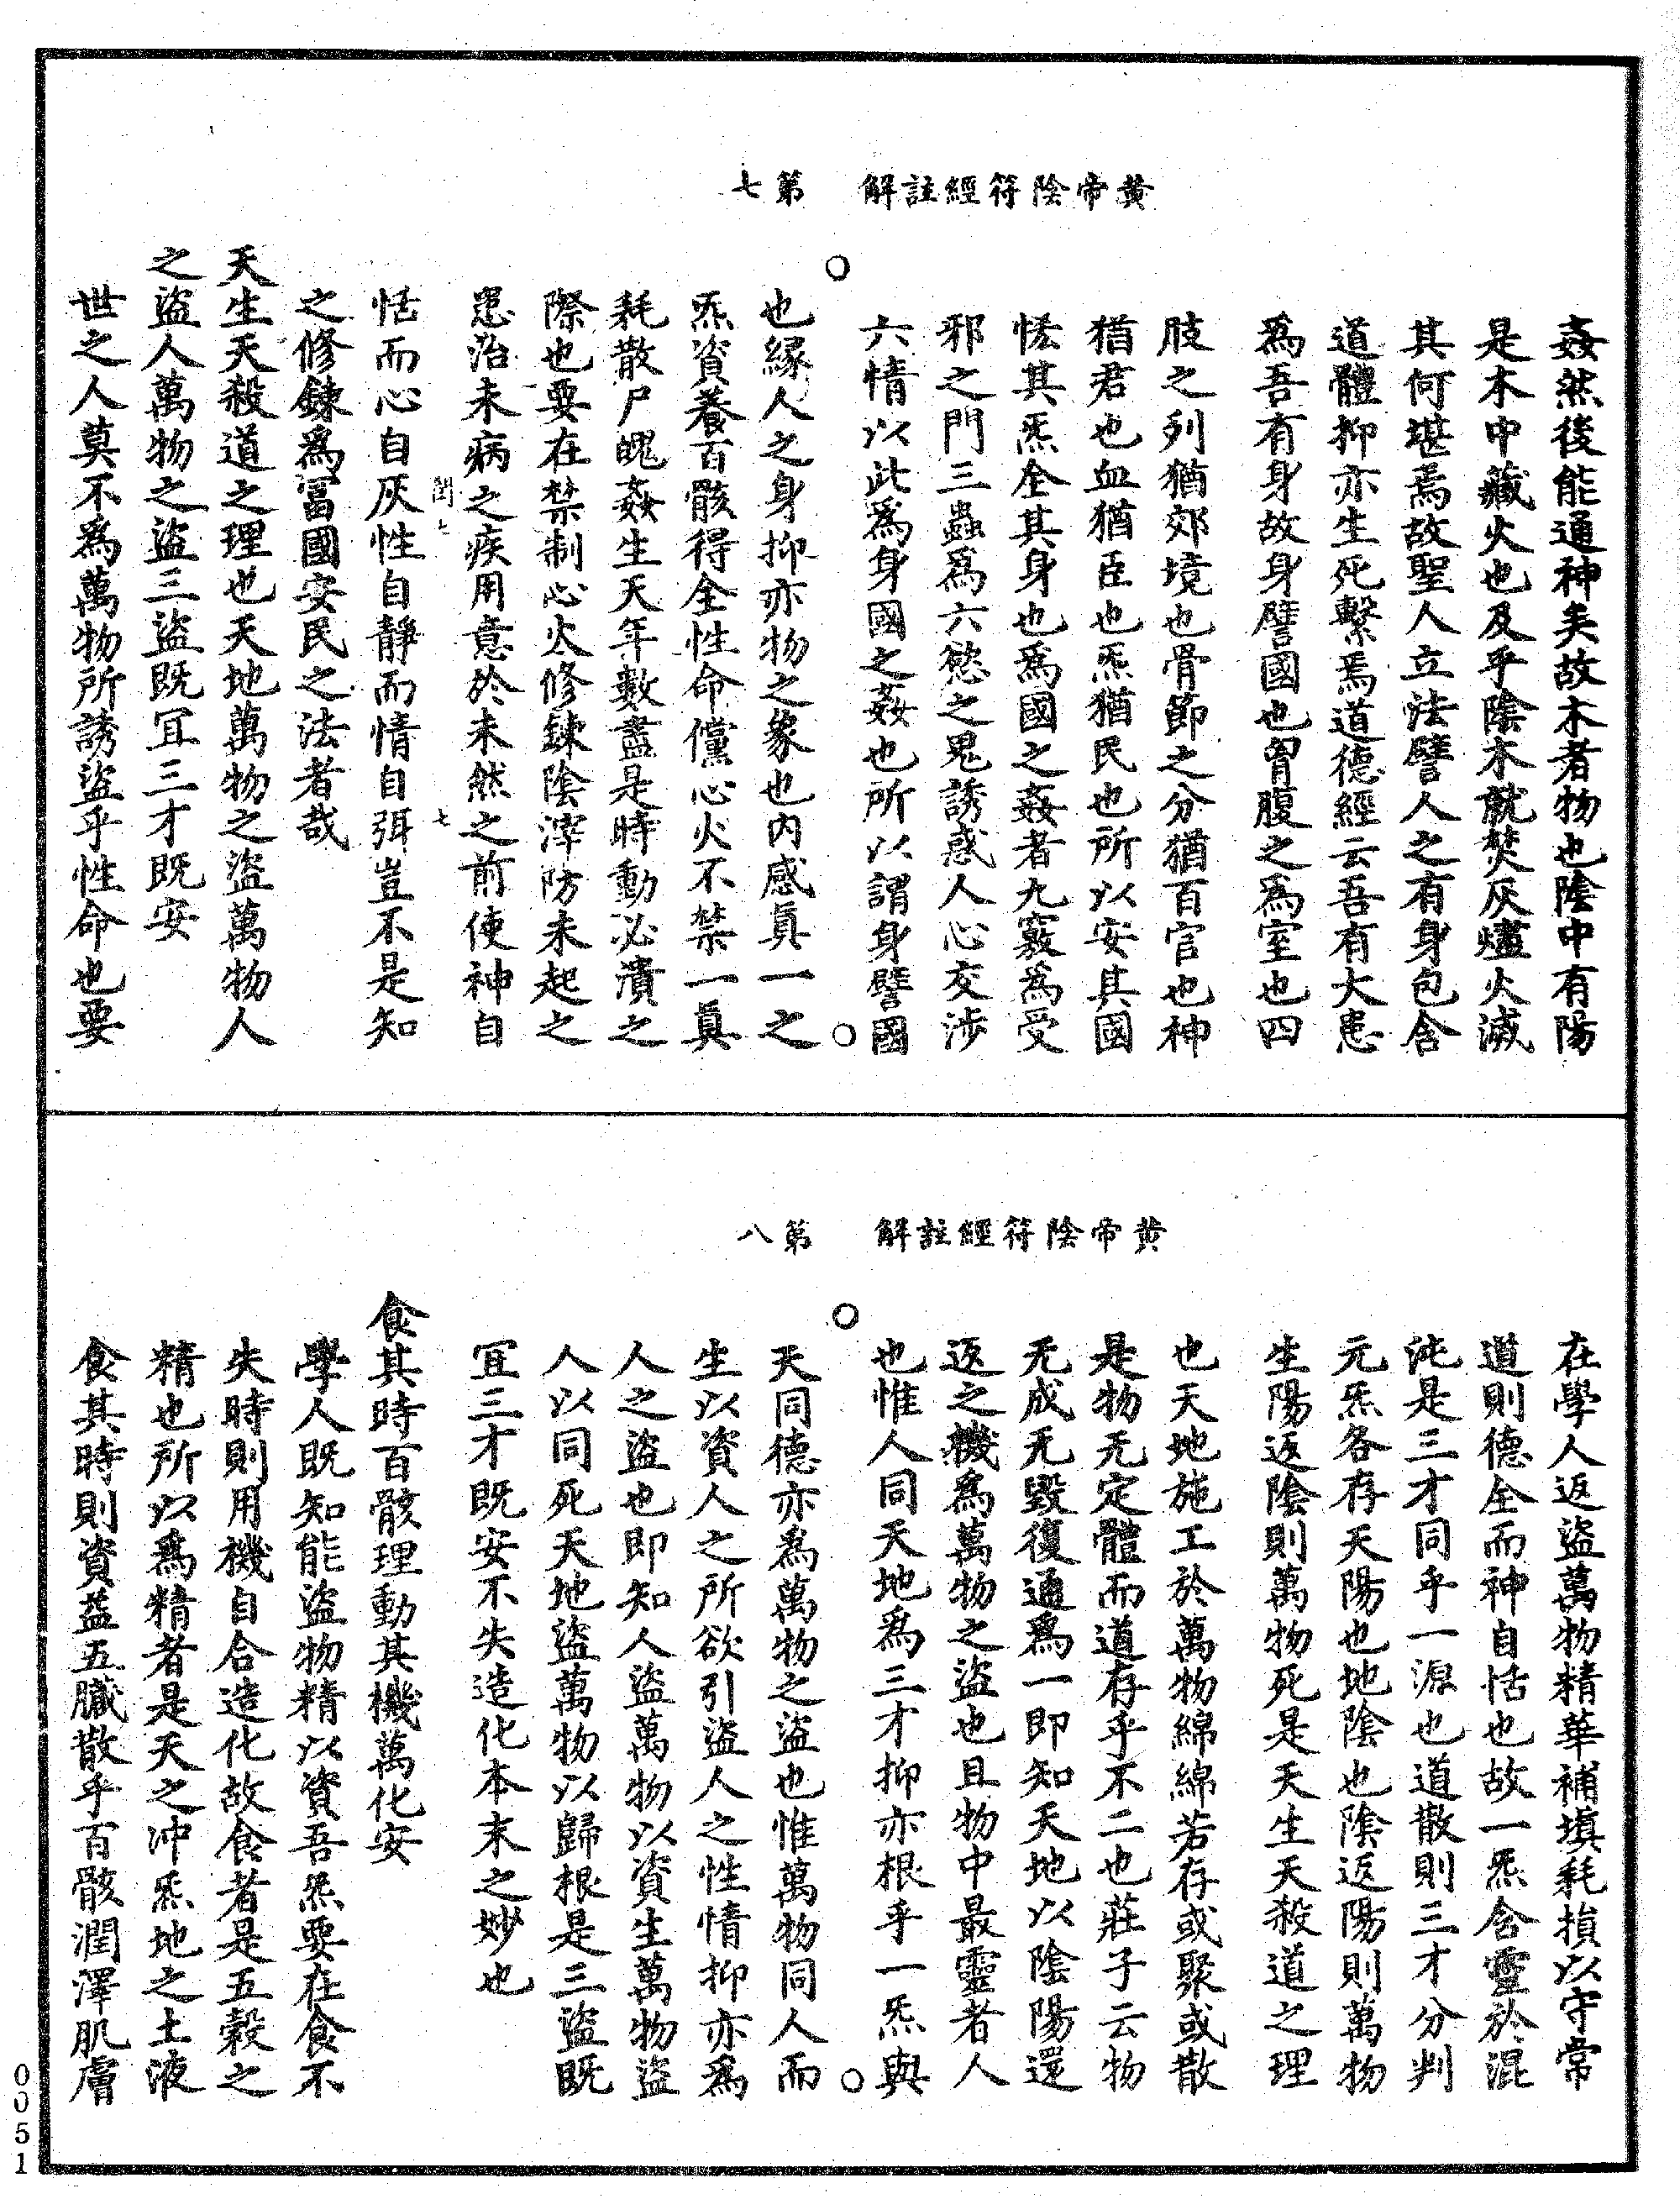 黃帝陰符經註解　第七
姦然後能通神矣故木者物也陰中有陽
是木中藏火也及乎陰木就焚灰燼火滅
其何堪焉故聖人立法譬人之有身包含
道體抑亦生死繫焉道德經云吾有大患
爲吾有身故身譬國也胷腹之爲室也四
肢之列猶郊境也骨節之分猶百官也神
猶君也血猶臣也炁猶民也所以安其國
恡其炁全其身也爲國之姦者九竅爲受
邪之門三蟲爲六慾之鬼誘惑人心交涉
六情以此爲身國之姦也所以謂身譬國
也緣人之身抑亦物之象也内感眞一之
炁資養百骸得全性命儻心火不禁一眞
耗散尸魄姦生天年數盡是時動必潰之
際也要在禁制心火修鍊陰滓防未起之
患治未病之疾用意於未然之前使神自
閏七　七
恬而心自灰性自靜而情自弭豈不是知
之修鍊爲富國安民之法者哉
天生天殺道之理也天地萬物之盜萬物人
之盜人萬物之盜三盜既冝三才既安
世之人莫不爲萬物所誘盜乎性命也要
黃帝陰符經註解　第八
在學人返盜萬物精華補填耗損以守常
道則德全而神自恬也故一炁含靈於混
沌是三才同乎一源也道散則三才分判
元炁各存天陽也地陰也陰返陽則萬物
生陽返陰則萬物死是天生天殺道之理
也天地施工於萬物綿綿若存或聚或散
是物无定體而道存乎不二也莊子云物
无成无毀復通爲一即知天地以陰陽還
返之機爲萬物之盜也且物中最靈者人
也惟人同天地爲三才抑亦根乎一炁與
天同德亦爲萬物之盜也惟萬物同人而
生以資人之所欲引盜人之性情抑亦爲
人之盜也即知人盜萬物以資生萬物盜
人以同死天地盜萬物以歸根是三盜既
冝三才既安不失造化本末之妙也
食其時百骸理動其機萬化安
學人既知能盜物精以資吾炁要在食不
失時則用機自合造化故食者是五穀之
精也所以爲精者是天之沖炁地之土液
食其時則資益五臟散乎百骸潤澤肌膚
0051